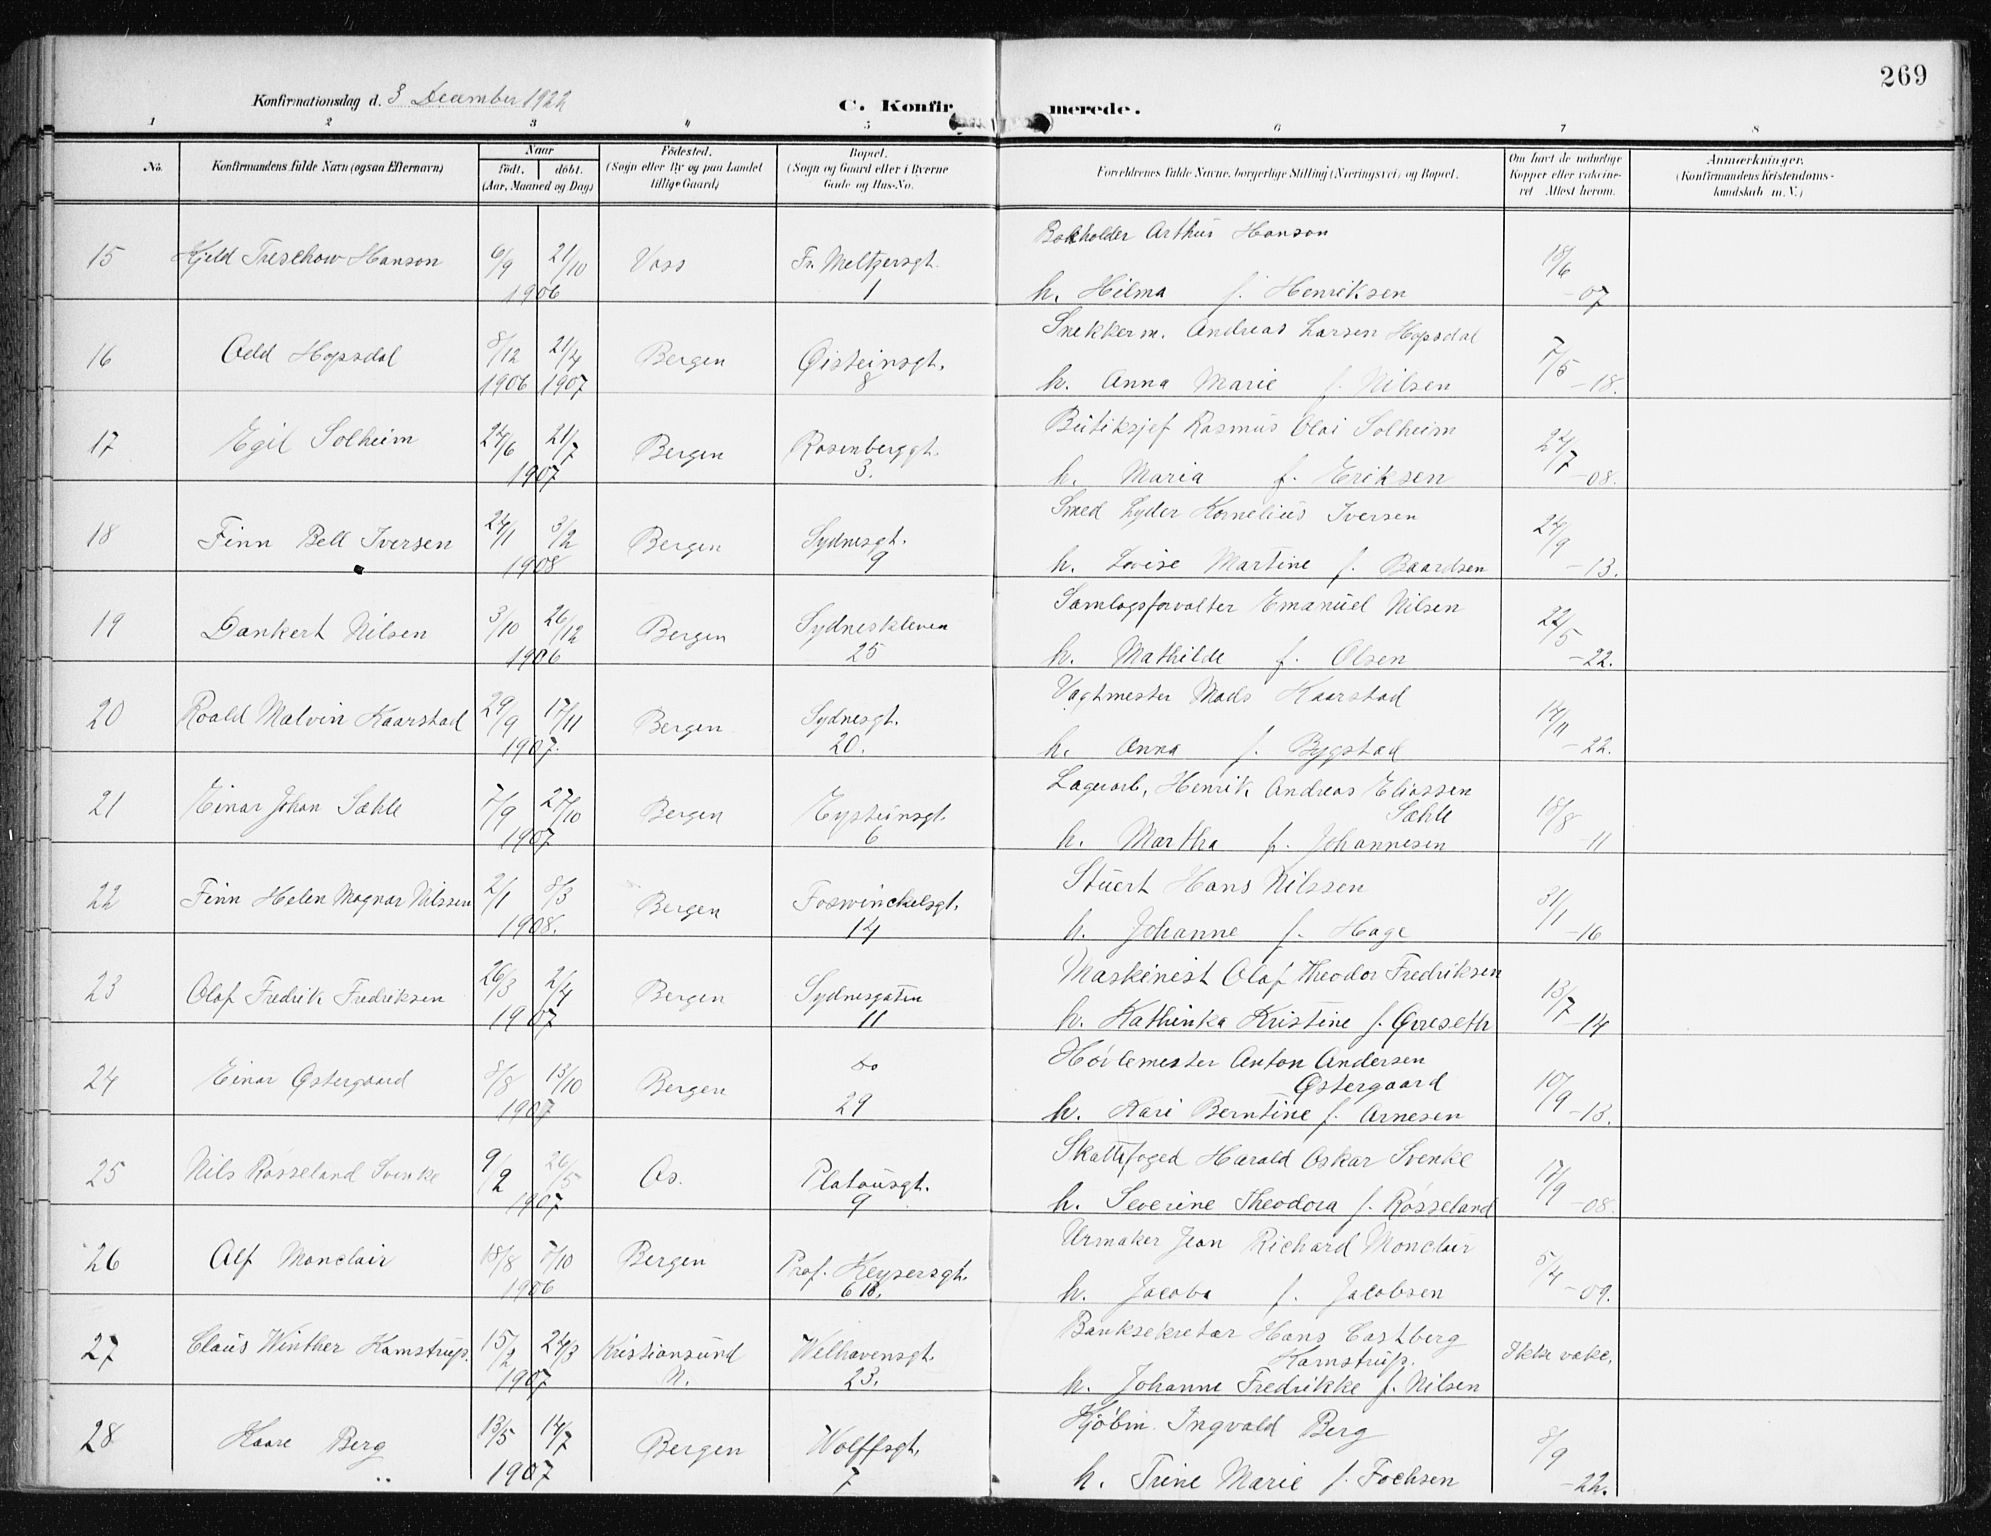 269
Konfirmationsdag d. 3 December 1922
C. Konfirmerede.
1 2 3 4 5 6 7 8
No. Konfirmandens fulde Navn (ogsaa Efternavn) Naar födt. döbt. (Aar, Maaned og Dag) Födested. (Sogn eller By og paa Landet tillige Gaard) Bopæl. (Sogn og Gaard eller i Byerne Gade og Hus-No. Forældrenes fulde Navne, borgerlige Stilling (Næringsvei) og Bopæl. Om havt de naturlige Kopper eller vakcineret. Attest herom. Anmærkninger. (Konfirmandens Kristendomskundskab m. V.)
15 Kjeld Treschow Hanson 6/9 21/10 1906 Voss Fr. Meltzersgt. 1 Bokholder Arthur Hanson
h. Hilma f. Henriksen 18/6 -07
16 Odd Hopsdal 8/12 1906 21/4 1907 Bergen Øisteinsgt. 8 Snekkerm. Andreas Larsen Hopsdal
h. Anna Marie f. Nilsen 7/5 -18.
17 Egil Solheim 24/6 21/7 1907 Bergen Rosenberggt. 3. Butiksjef Rasmus Olai Solheim
h. Maria f. Eriksen 24/7 -08.
18 Finn Bell Iversen 24/1 3/2 1908 Bergen Sydnesgt. 9 Smed Lyder Kornelius Iversen
h. Lovise Martine f. Baardsen 24/9 -13.
19 Dankert Nilsen 3/10 26/12 1906 Bergen Sydneskleven 25 Samlagsforvalter Emanuel Nilsen
h. Mathilde f. Olsen 22/5 -22.
20 Roald Malvin Kaarstad 29/9 17/11 1907. Bergen Sydnesgt. 20. Vagtmester Mads Kaarstad
h. Anna f. Bygstad 14/11 -22.
21 Einar Johan Sæhle 7/9 27/10 1907 Bergen Eysteinsgt. 6 Lagerarb, Henrik Andreas Eliassen
Sæhle
h. Martha f. Johannesen 18/8 -11
22 Finn Helen Magnar Nilssen 2/1 8/3 1908. Bergen Foswinckelsgt. 14 Stuert Hans Nilssen
h. Johanne f. Hage 31/1 -16
23 Olaf Fredrik Fredriksen 26/3 2/4 1907 Bergen Sydnesgaten 11 Maskinist Olaf Theodor Fredriksen
h. Kathinka Kristine f. 13/7 -14
24 Einar Østergaard 8/8 13/10 1907 Bergen do 29 Anton Andersen
Østergaard
h. Kari Berntine f. Arnesen 10/9 -13.
25 Nils Røsseland Svenke 9/2 26/5 1907 Os. Platousgt. 9 Skattefoged Harald Oskar Svenke
h. Severine Theodora f. Røsseland 17/9 -08.
26 Alf Monclair 18/8 7/10 1906 Bergen Prof. Keysersgt. 6 B. Urmaker Jean Richard Monclair
h. Jacoba f. Jacobsen 5/4 -09.
27 Claus Winther Kamstrup. 15/2 24/3 1907 Kristiansund N. Welhavensgt. 23. Banksekretær Hans Castberg
Kamstrup.
h. Johanne Fredrikke f. Nilsen Ikke vakc.
28 Kaare Berg 13/5 14/7 1907 Bergen Wolffsgt. 7 Kjøbm. Ingvald Berg
h. Trine Marie f. Fochsen 8/9 -22.